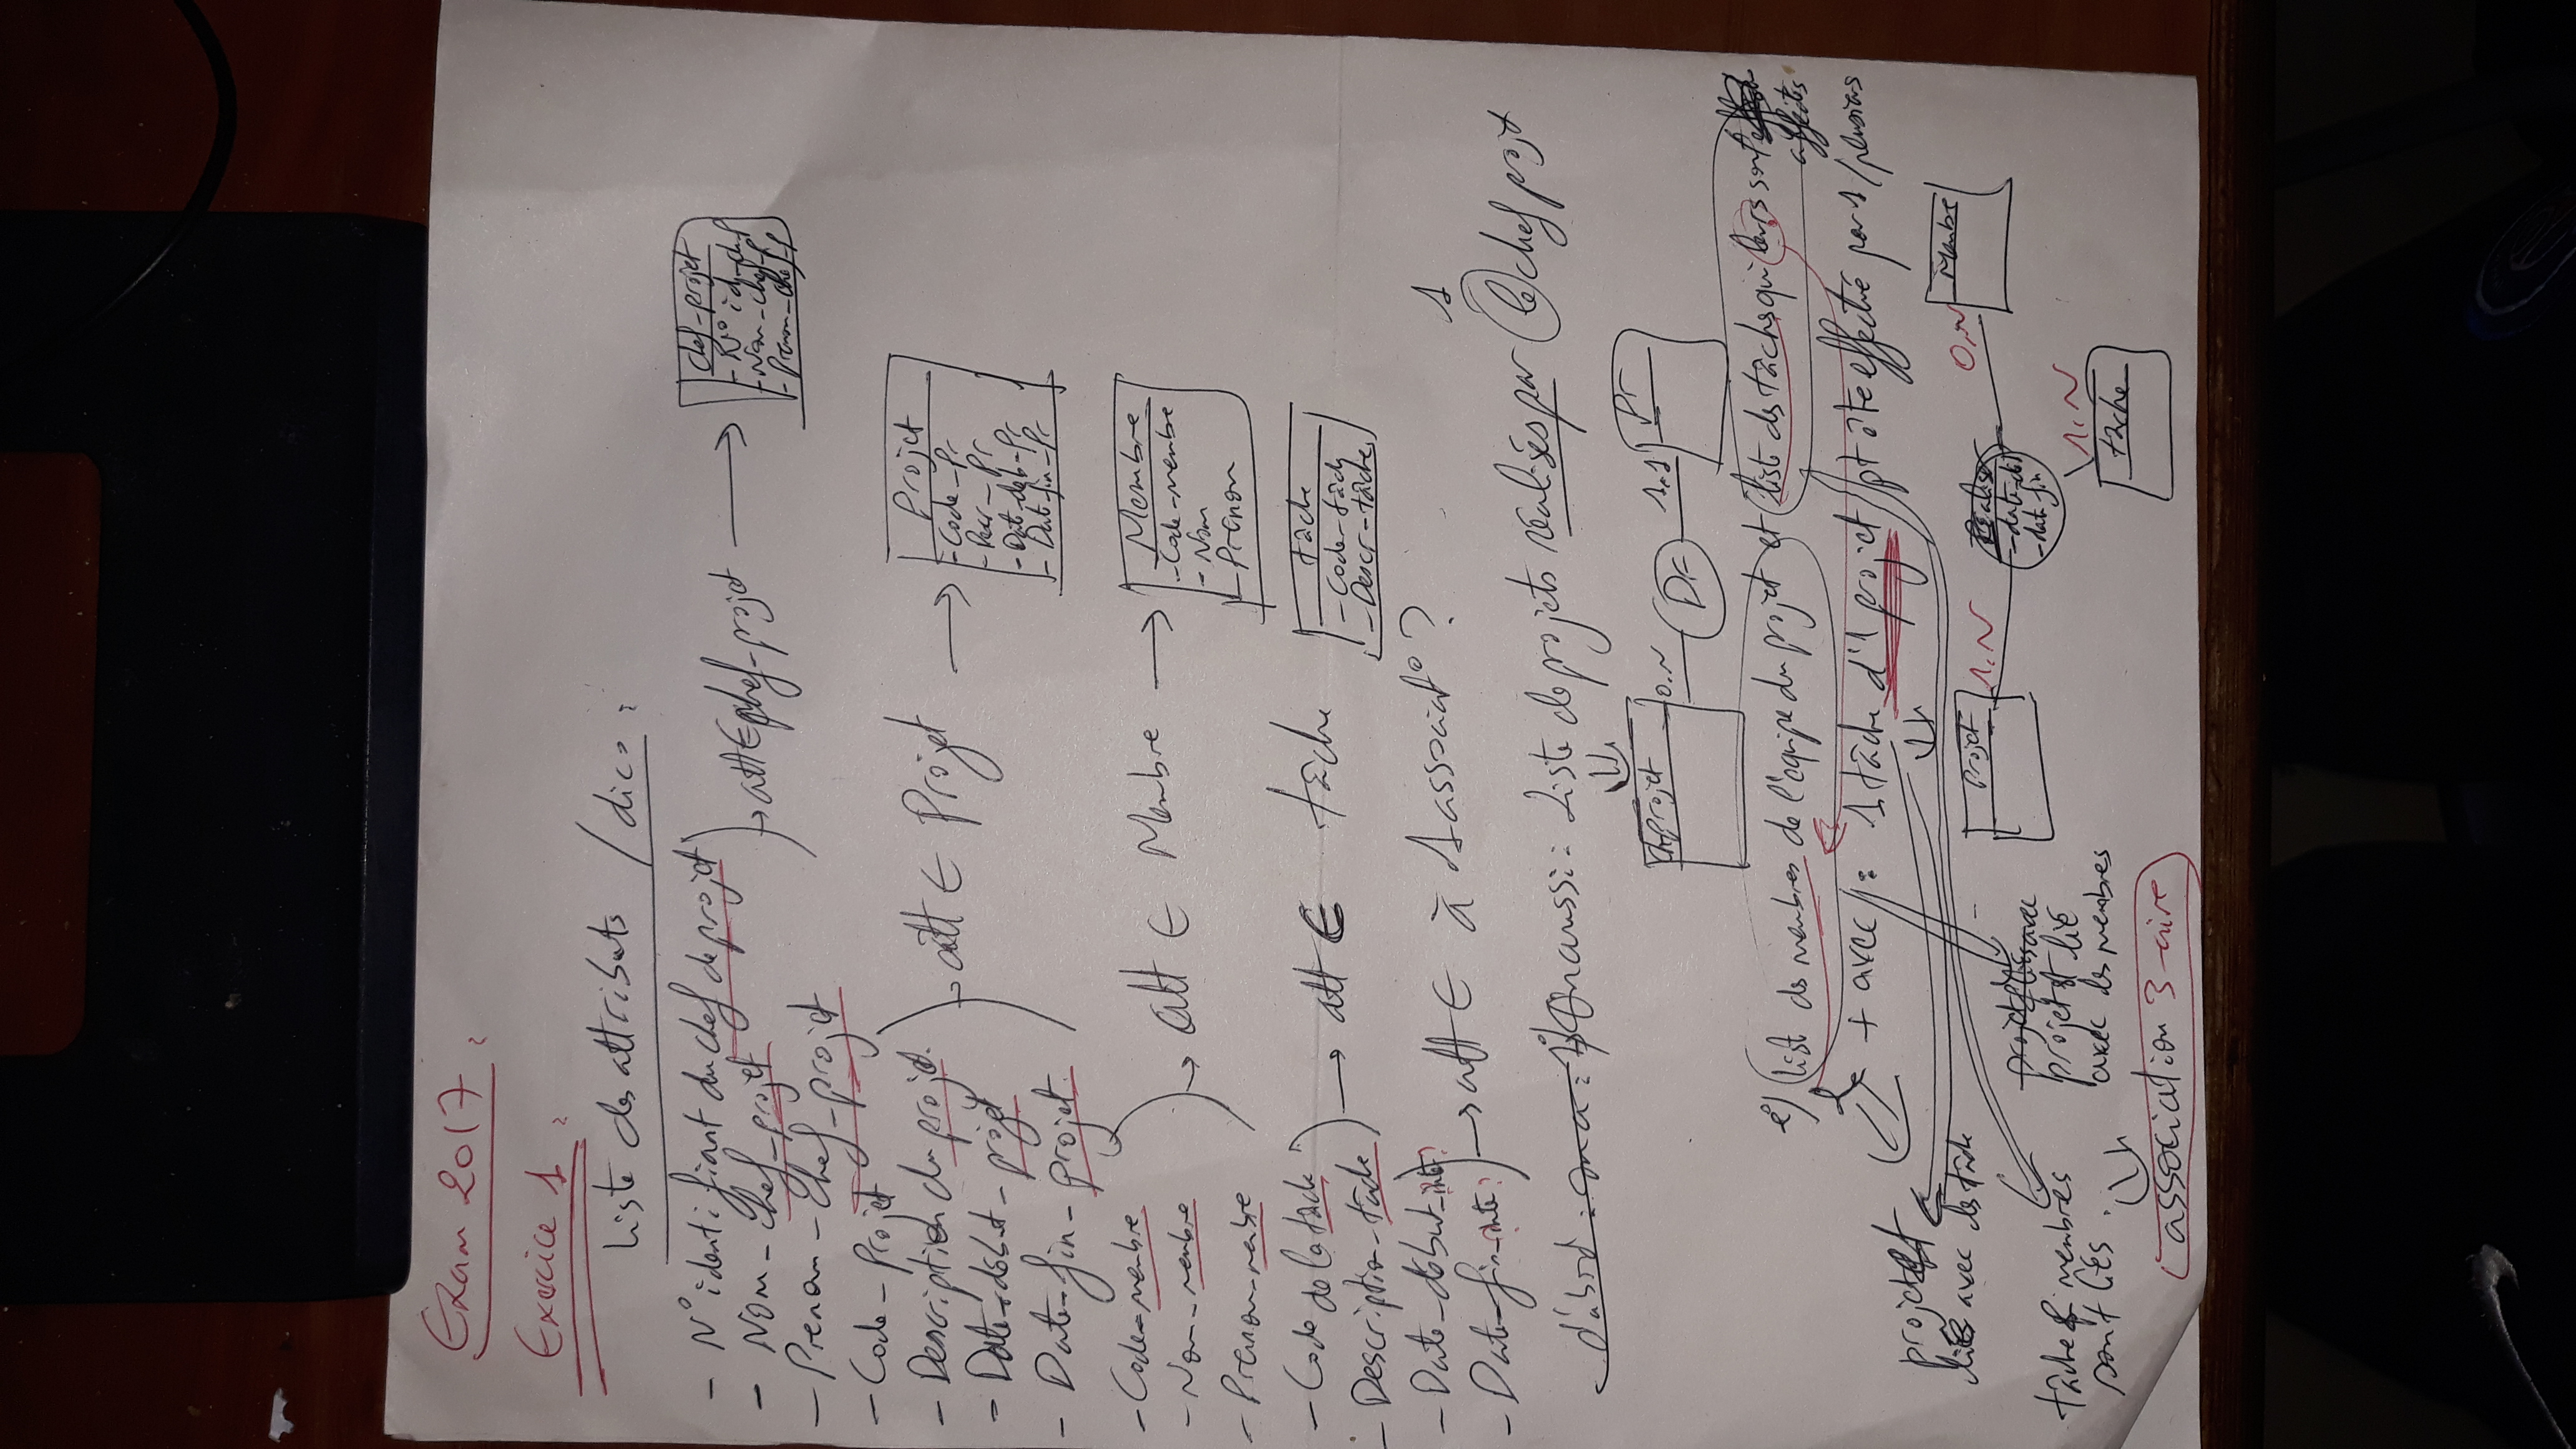 Exam 2017 :
Exercice 1 :
Liste des attributs / dico :
- N° identifiant du chef de projet
- Nom - chef - projet
- Prenom - chef - projet
→ att ∈ chef - projet →
chef - projet
- N° id - chef
- Nom - chef - p
- Prenom - chef - p
- Code - Projet
- Description du projet.
- Date - début - projet
- Date - fin - projet.
→ att ∈ Projet →
Projet
- Code - Pr
- Descr - Pr
- Date - deb - Pr
- Date - fin - Pr
- Code - membre
- Nom - membre
- Prenom - membre
→ att ∈ Membre →
Membre
- Code - membre
- Nom
- Prenom
- Code de la tâche
- Description - tâche
→ att ∈ tâche
tâche
- Code - tâch
- Descr - tâche
- Date - début - inte ?
- Date - fin - inte ?
→ att ∈ à 1 associat° ?
1
d'abord : on a : 1) On a aussi : Liste de projets réalisés par le chef projt
projet 0.N DF 1.1 Pr
2) list des membres de l'équipe du projet et liste des tâches qui leurs sont
affectés
+ avec : 1 tâche d'1 projet pt être effectué par 1 / plusieurs
projet est
liés avec des tâche
tâche & membres
sont liés .
projet est lié
avec des membres
association 3-aire
Projet 1.N
Réaliser
- date deb
- date fin
0.N Membre
1.N
tâche